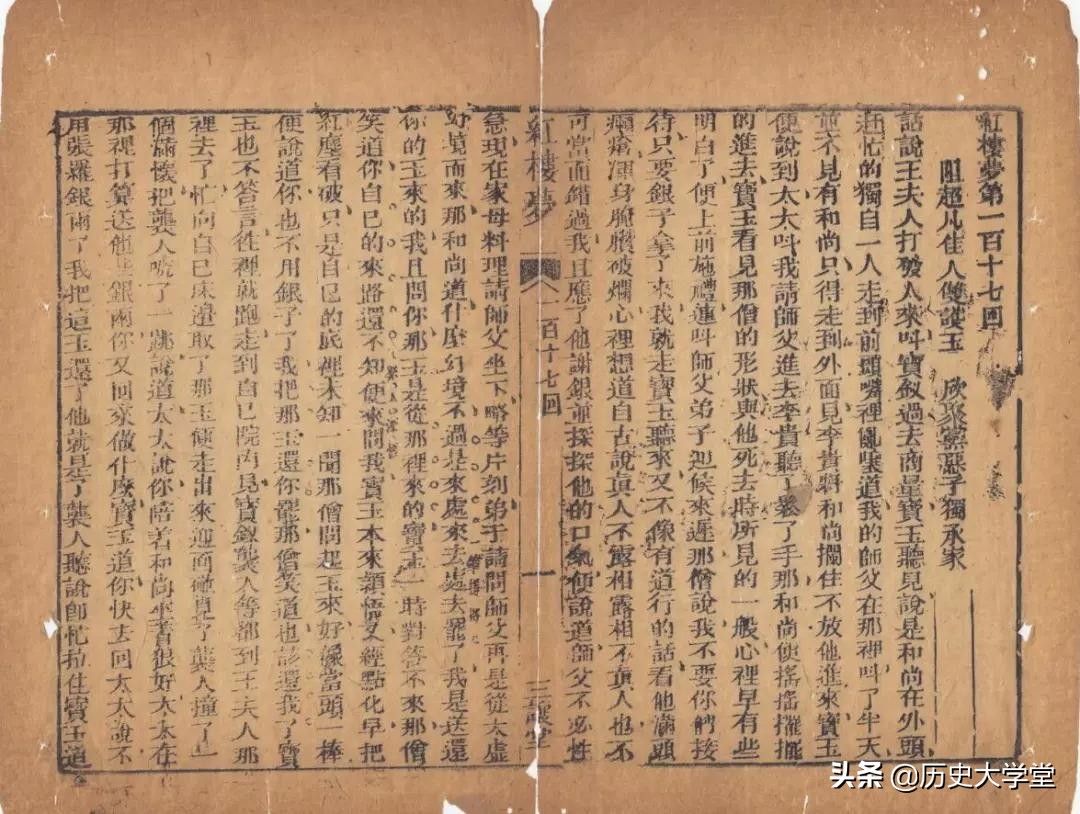 紅樓夢第一百十七回
阻超凡佳人雙護玉 欣聚黨惡子獨承家
話說王夫人打發人來叫寶釵過去商量寶玉聽見說是和尚在外頭
赶忙的獨自一人走到前頭嘴裡亂嚷道我的師父在那裡叫了半天
並不見有和尚只得走到外面見李貴將和尚攔住不放他進來寶玉
便說到太太叫我請師父進去李貴聽了鬆了手那和尚便搖搖擺擺
的進去寶玉看見那僧的形狀與他死去時所見的一般心裡早有些
明白了便上前施禮連叫師父弟子迎候來遲那僧說我不要你們接
待只要銀子拿了來我就走寶玉聽來又不像有道行的話看他滿頭
癩瘡渾身腌臢破爛心裡想道自古說真人不露相露相不真人也不
可當面錯過我且應了他謝銀並探探他的口氣便說道師父不必性
紅樓夢 一百十七回 一 三讓堂
急現在家母料理請師父坐下略等片刻弟子請問師父可是從太虛
幻境而來那和尚道什麼幻境不過是來處來去處去罷了我是送還
你的玉來的我且問你那玉是從那裡來的寶玉一時對答不來那僧
笑道你自己的來路還不知便來問我寶玉本來穎悟又經點化早把
紅塵看破只是自己的底裡未知一聞那僧問起玉來好像當頭一棒
便說道你也不用銀子了我把那玉還你罷那僧笑道也該還我了寶
玉也不答言往裡就跑走到自己院內見寶釵襲人等都到王夫人那
裡去了忙向自己床邊取了那玉便走出來迎面碰見了襲人撞了一
個滿懷把襲人唬了一跳說道太太說你陪著和尚坐著狠好太太在
那裡打算送他些銀兩你又回來做什麼寶玉道你快去回太太說不
用張羅銀兩了我把這玉還了他就是了襲人聽說即忙拉住寶玉道
头条 @历史大学堂